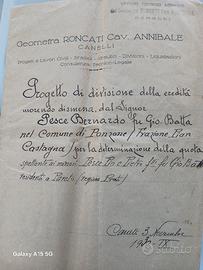 Geometra RONCATI Cav. ANNIBALE
CANELLI
Progetti e Lavori Civili - Stradali - Idraulici - Divisioni - Liquidazioni
Consulenza Tecnico-Legale
Progetto di divisione della eredità
morendo dismessa dal Signor
Pesce Bernardo fu Gio Batta
nel Comune di Ponzone / Frazione
per la determinazione della quota
spettante ai minori Pesce fu Gio Batta
residenti a
Canelli 3 Novembre
IX
Galaxy A15 5G
subito